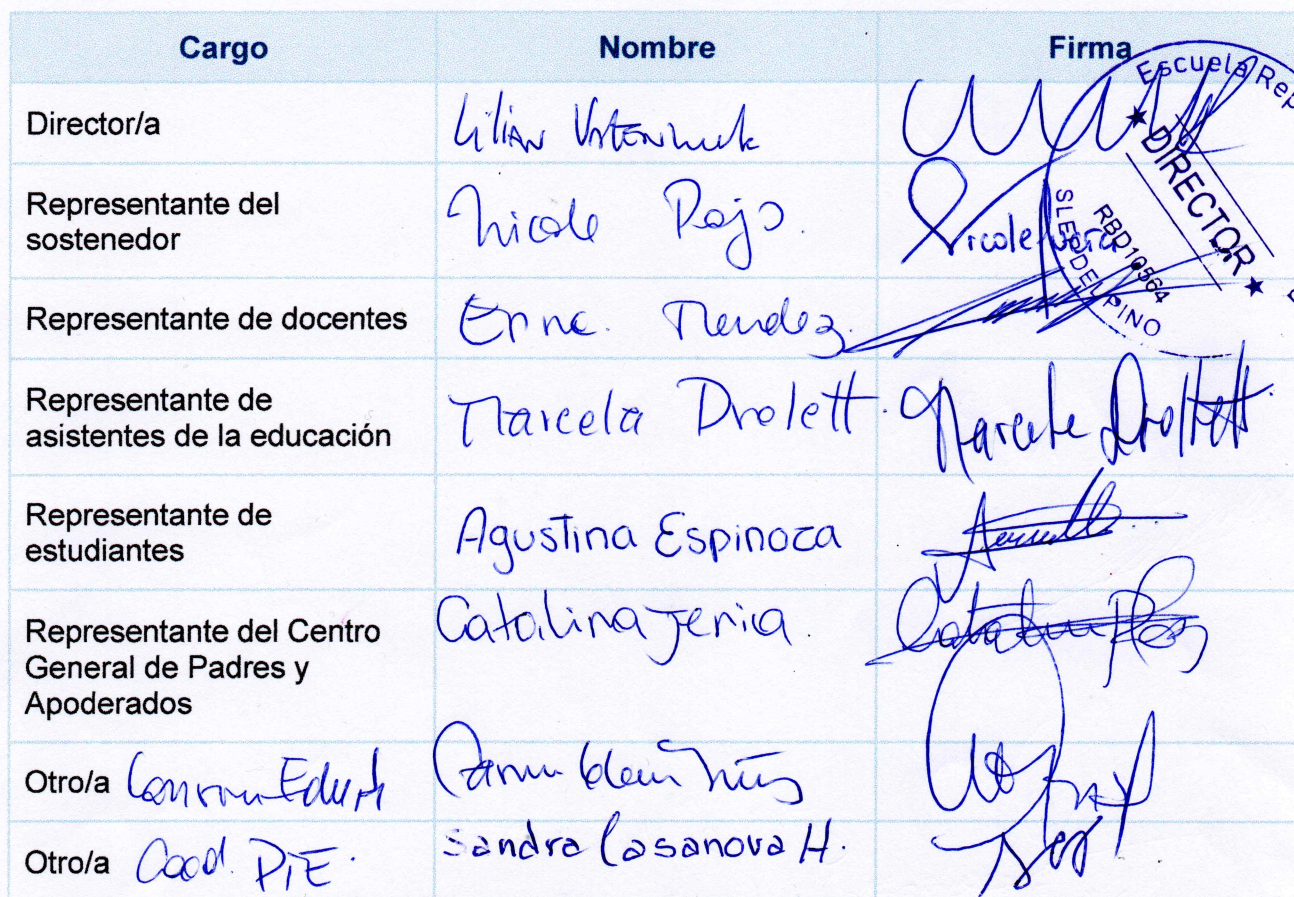 Cargo Nombre Firma
Director/a Lilian
Representante del
sostenedor
Nicole Rojo.
Nicole Vera
Representante de docentes Mendez.
Representante de
asistentes de la educación
Marcela Drolett. Marcela Drollett
Representante de
estudiantes
Agustina Espinoza
Representante del Centro
General de Padres y
Apoderados
Catalina
Otro/a
Otro/a Cood. PIE. Sandra Casanova H.
Escuela Rep
★ DIRECTOR ★
RBD10564
SLEP DEL PINO